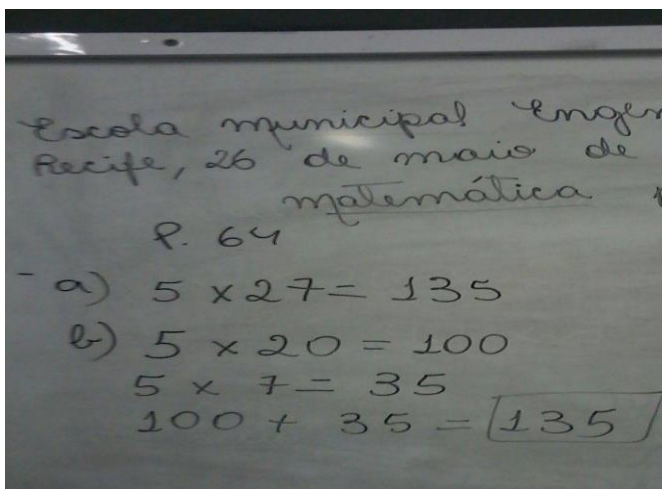 Escola municipal
Recife, 26 de maio de
matemática
P. 64
a) 5 x 27 = 135
b) 5 x 20 = 100
5 x 7 = 35
100 + 35 = 135